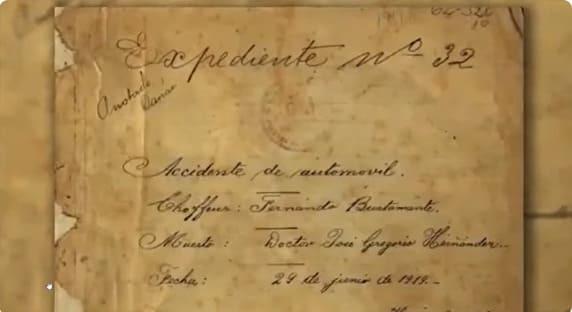 Expediente nº 32
Accidente de automovil.
Chouffeur: Fernando Bustamante.
Muerto: Doctor José Gregorio Hernández.
Fecha: 29 de junio de 1919.-